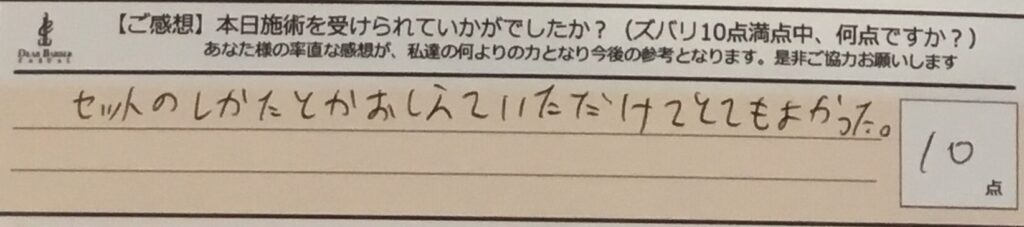 【ご感想】本日施術を受けられていかがでしたか?(ズバリ10点満点中、何点ですか?)
あなた様の率直な感想が、私達の何よりの力となり今後の参考となります。是非ご協力お願いします
DEAR BARBER
CASUAL
セットのしかたとかおしえていただけてとてもよかった。
10
点